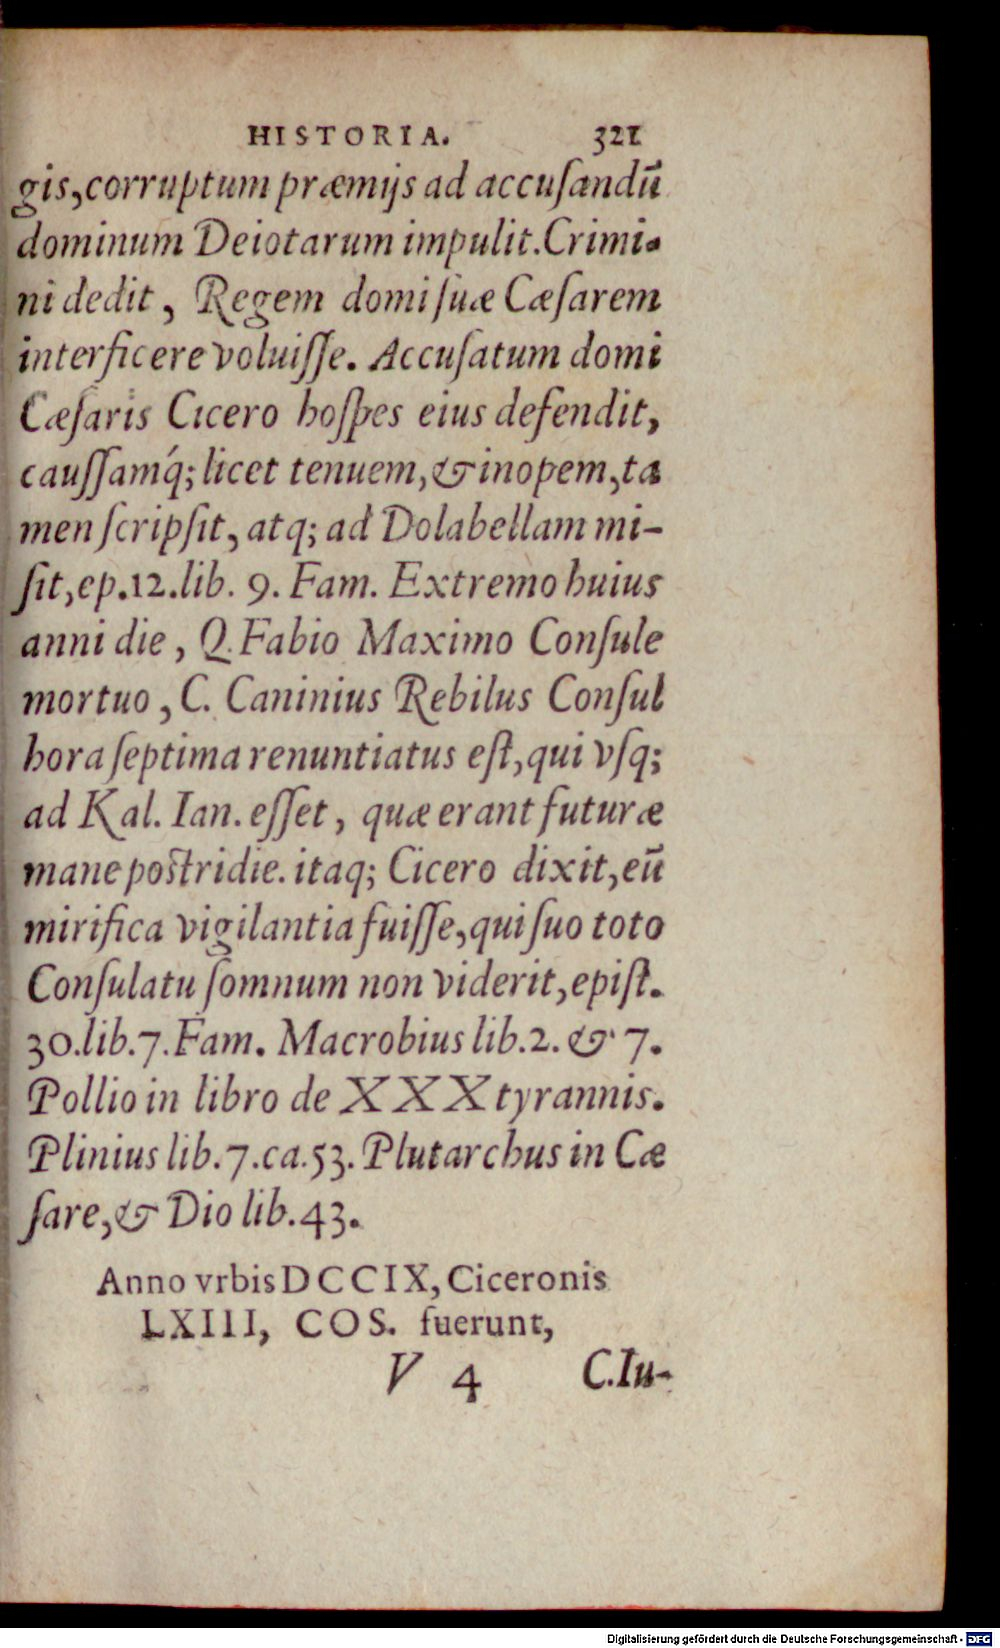 HISTORIA. 321
gis,corruptum præmijs ad accuſandū
dominum Deiotarum impulit.Crimi-
ni dedit, Regem domi ſuæ Cæſarem
interficere voluiſſe. Accuſatum domi
Cæſaris Cicero hoſpes eius defendit,
cauſſamq́; licet tenuem,& inopem,ta
men ſcripſit, atq; ad Dolabellam mi-
ſit,ep.12.lib. 9. Fam. Extremo huius
anni die, Q. Fabio Maximo Conſule
mortuo, C. Caninius Rebilus Conſul
hora ſeptima renuntiatus eſt,qui vſq;
ad Kal. Ian. eſſet, quæ erant futuræ
mane poſtridie. itaq; Cicero dixit,eū
mirifica vigilantia fuiſſe,qui ſuo toto
Conſulatu ſomnum non viderit,epiſt.
30.lib.7.Fam. Macrobius lib.2. & 7.
Pollio in libro de XXX tyrannis.
Plinius lib.7.ca.53. Plutarchus in Cæ
ſare,& Dio lib.43.
Anno vrbis DCCIX, Ciceronis
LXIII, COS. fuerunt,
V 4 C.Iu-
Digitalisierung gefördert durch die Deutsche Forschungsgemeinschaft - DFG